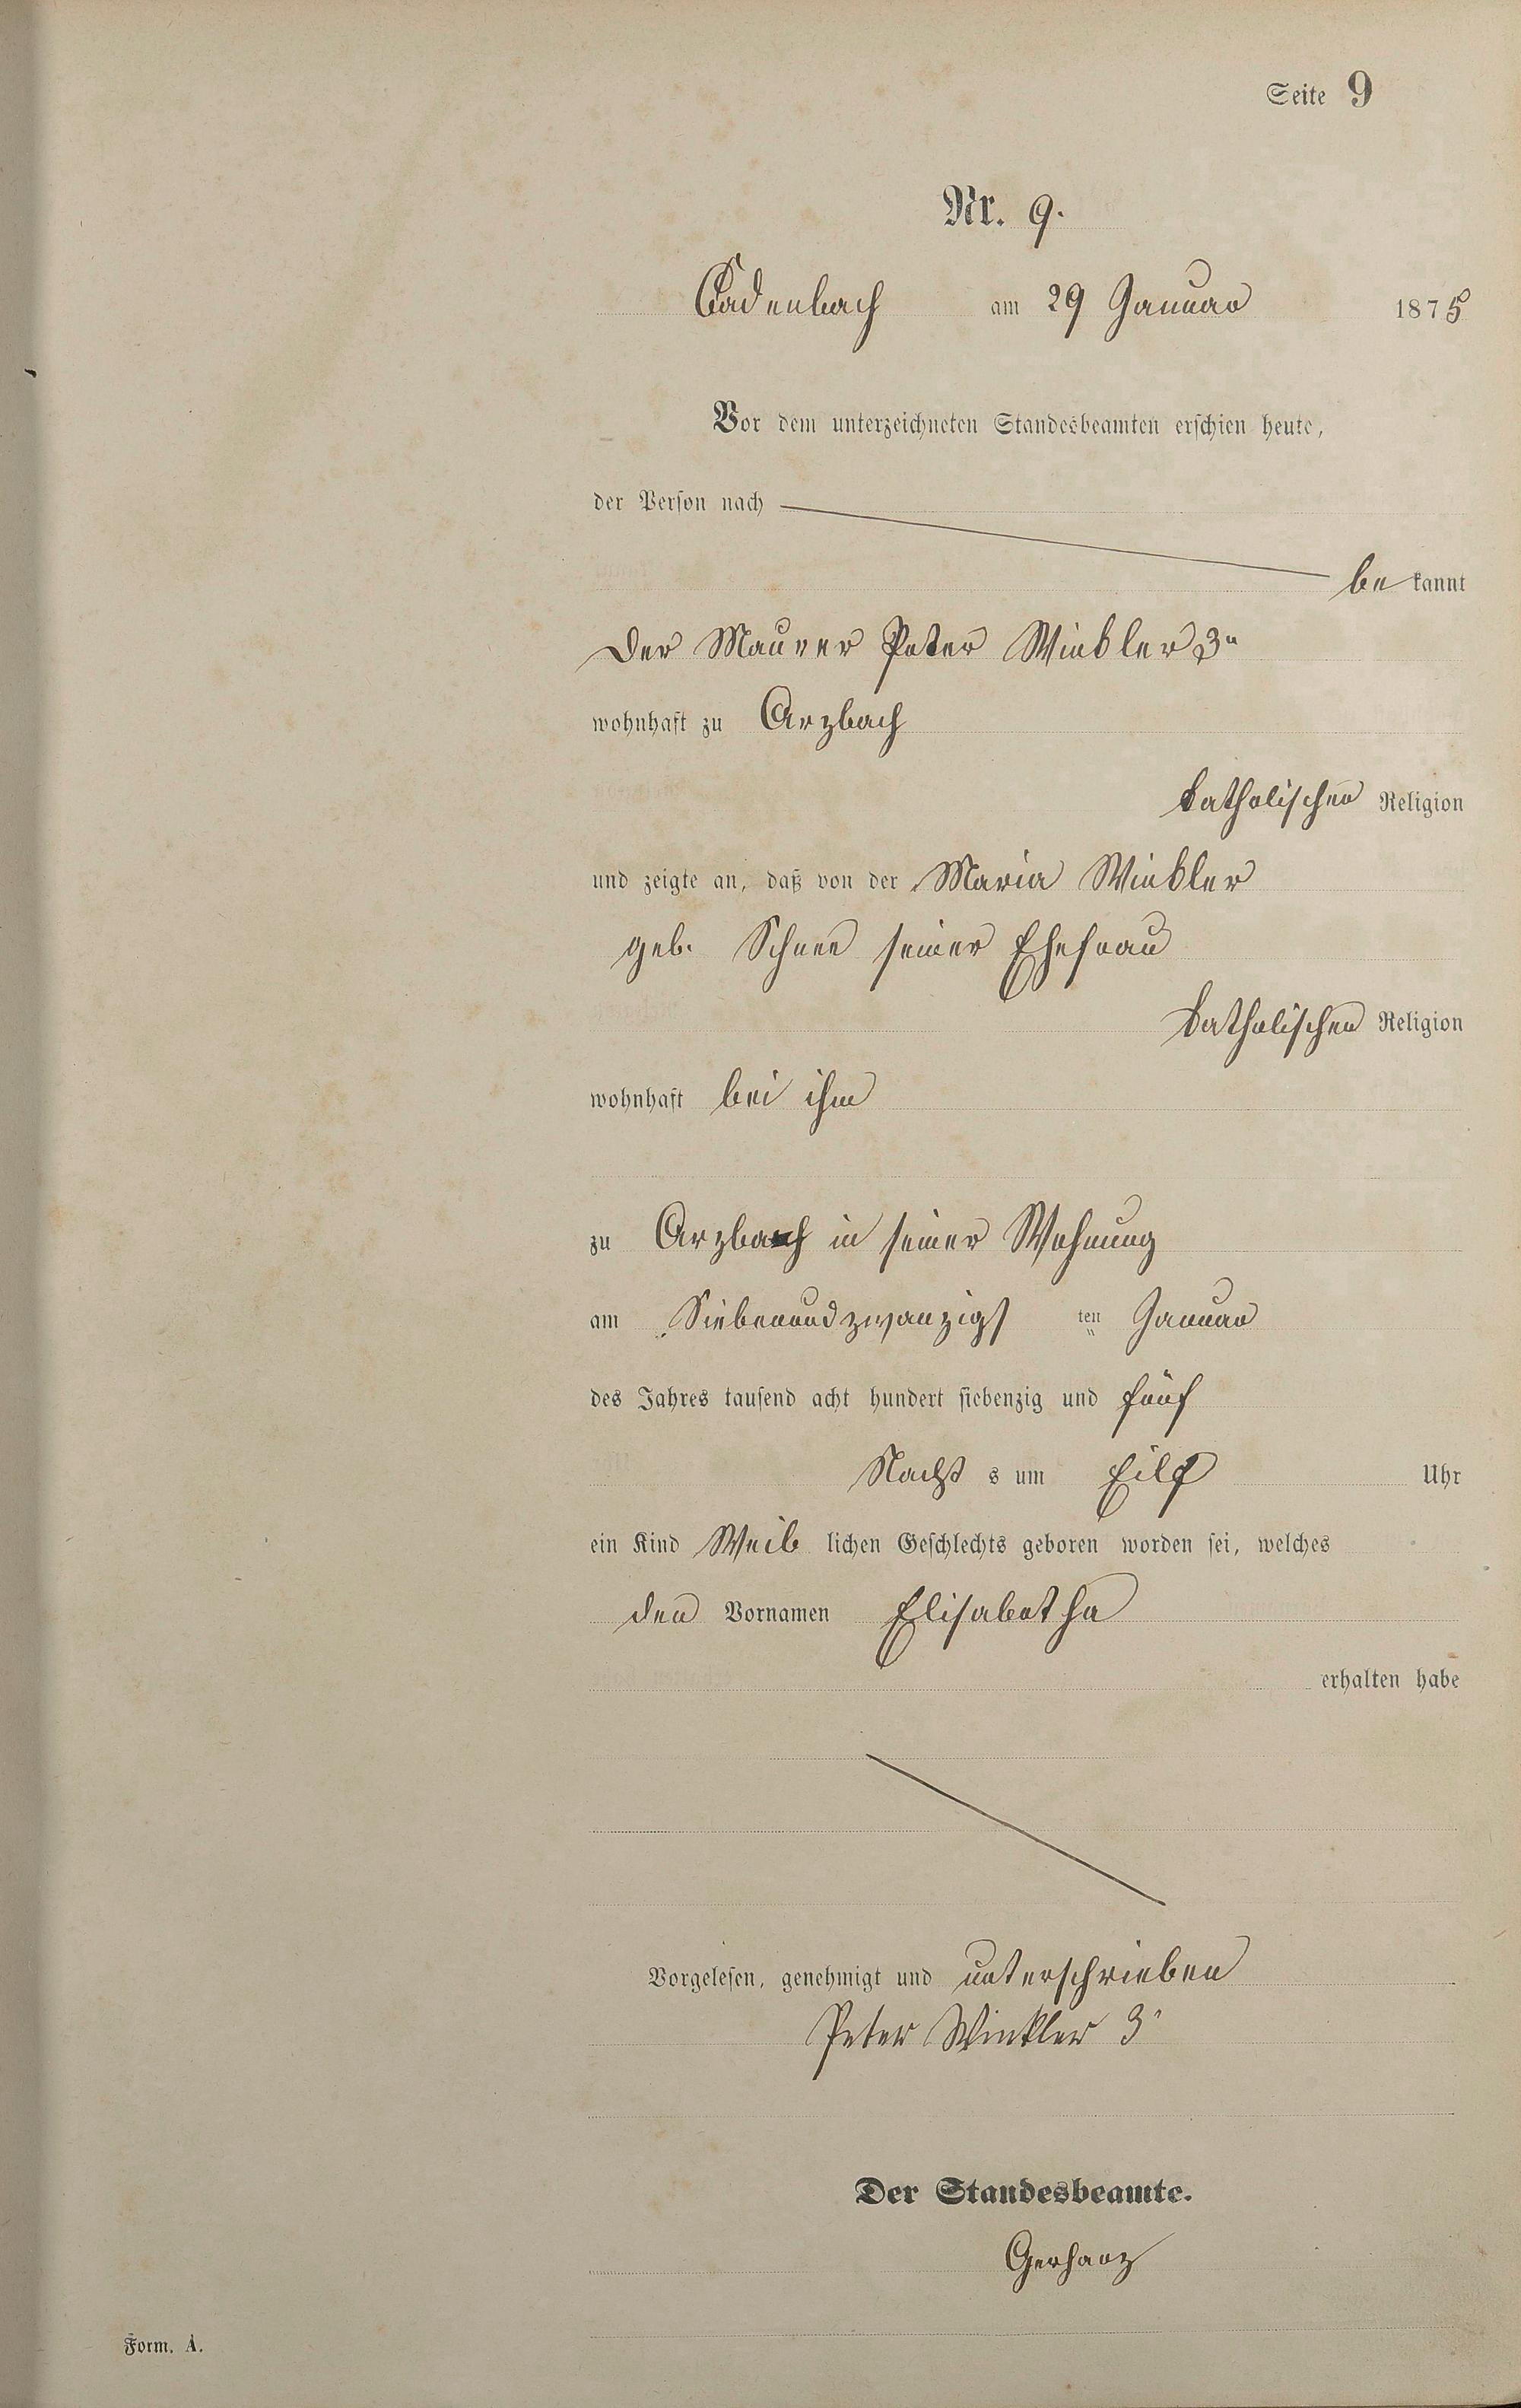 Seite 9
Nr. 9.
Cadenbach am 29 Januar 1875
Vor dem unterzeichneten Standesbeamten erschien heute,
der Person nach
be kannt
der Maurer Peter Winkler 3r
wohnhaft zu Arzbach
katholischer Religion
und zeigte an, daß von der Maria Winkler
geb. Schnee seiner Ehefrau
katholischer Religion
wohnhaft bei ihm
zu Arzbach in seiner Wohnung
am Siebenundzwanzigs ten Januar
des Jahres tausend acht hundert siebenzig und fünf
Nacht s um Eilf Uhr
ein Kind Weib lichen Geschlechts geboren worden sei, welches
den Vornamen Elisabetha
erhalten habe
Vorgelesen, genehmigt und unterschrieben
Peter Winkler 3r
Der Standesbeamte.
Gerharz
Form. A.